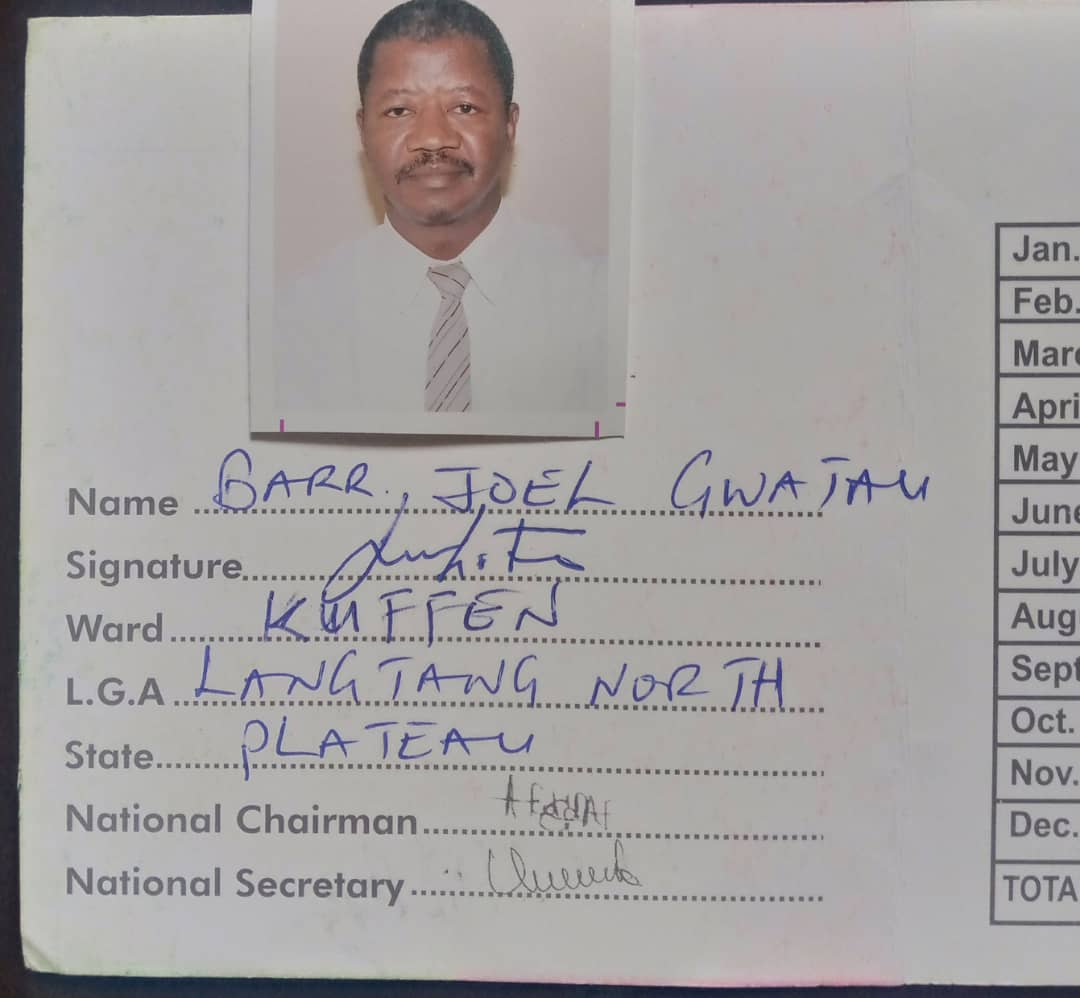 Name BARR., JOEL GWATAU
Signature
Ward KUFFEN
L.G.A LANGTANG NORTH
State PLATEAU
National Chairman
National Secretary
Jan.
Feb.
Marc
Apri
May
June
July
Aug
Sept
Oct.
Nov.
Dec.
TOTA